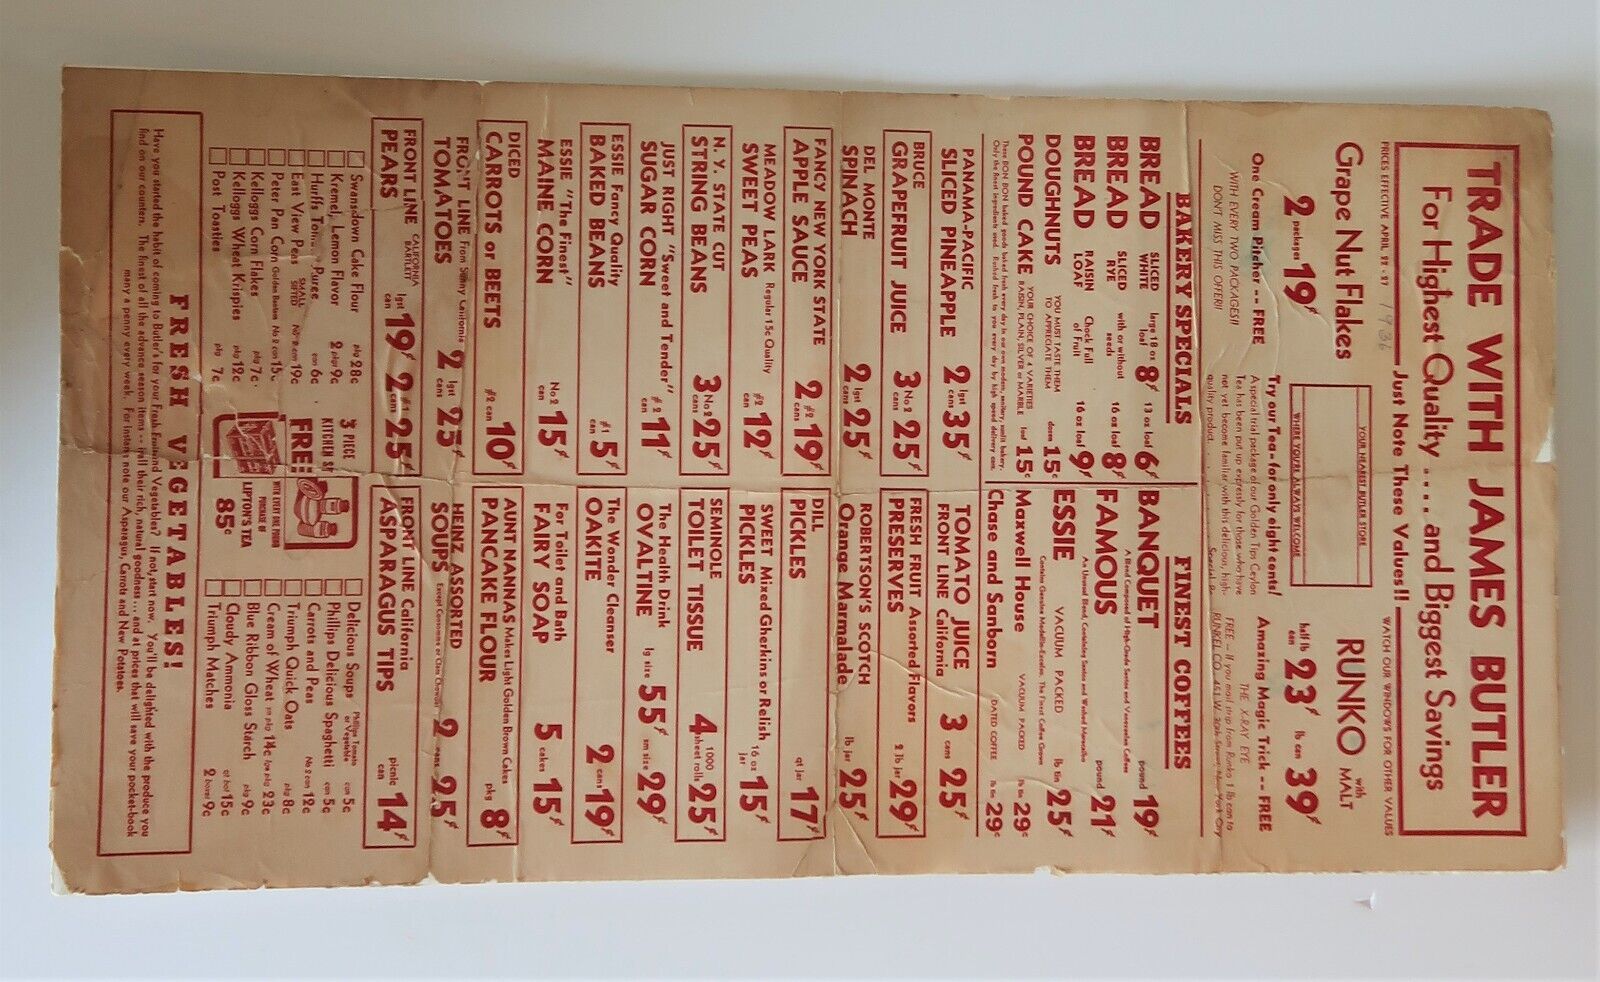 TRADE WITH JAMES BUTLER
For Highest Quality .... and Biggest Savings
Just Note These Values!!
PRICES EFFECTIVE APRIL 22 - 27 1936
WATCH OUR WINDOWS FOR OTHER VALUES
Grape Nut Flakes
2 packages 19¢
One Cream Pitcher -- FREE
WITH EVERY TWO PACKAGES!!
DON'T MISS THIS OFFER!!
YOUR NEAREST BUTLER STORE
WHERE YOU'RE ALWAYS WELCOME
Try our Tea - for only eight cents!
A special trial package of our Golden Tips Ceylon
Tea has been put up expressly for those who have
not yet become familiar with this delicious, high-
quality product. Special
RUNKO with MALT
half lb can 23¢ lb can 39¢
Amazing Magic Trick -- FREE
THE X-RAY EYE
FREE -- If you mail strip from Runko 1 lb can to
RUNKEL CO., 451 W. 30th Street, New York City
BAKERY SPECIALS
BREAD SLICED WHITE large 18 oz loaf 8¢ 13 oz loaf 6¢
BREAD SLICED RYE with or without seeds 16 oz loaf 8¢
BREAD RAISIN LOAF Chock Full of Fruit 16 oz loaf 9¢
DOUGHNUTS YOU MUST TASTE THEM TO APPRECIATE THEM dozen 15c
POUND CAKE YOUR CHOICE OF 4 VARIETIES RAISIN, PLAIN, SILVER or MARBLE loaf 15c
These BON BON baked goods baked fresh every day in our own modern, sanitary, sunlit bakery.
Only the finest ingredients used. Rushed fresh to you every day by high speed delivery cars.
FINEST COFFEES
BANQUET A Blend Composed of High-Grade Santos and Venezuelan Coffees pound 19¢
FAMOUS An Unusual Blend, Containing Santos and Washed Maracaibo pound 21¢
ESSIE VACUUM PACKED lb tin 25¢
Contains Genuine Medellin-Excelso, The Finest Coffee Grown
Maxwell House VACUUM PACKED lb tin 29c
Chase and Sanborn DATED COFFEE lb tin 29c
PANAMA-PACIFIC
SLICED PINEAPPLE 2 lgst cans 35¢
BRUCE
GRAPEFRUIT JUICE 3 No 2 cans 25¢
DEL MONTE
SPINACH 2 lgst cans 25¢
FANCY NEW YORK STATE
APPLE SAUCE 2 #2 cans 19¢
MEADOW LARK Regular 15c Quality
SWEET PEAS #2 can 12¢
N. Y. STATE CUT
STRING BEANS 3 No 2 cans 25¢
JUST RIGHT "Sweet and Tender"
SUGAR CORN #2 can 11¢
ESSIE Fancy Quality
BAKED BEANS #1 can 5¢
ESSIE "The Finest"
MAINE CORN No 2 can 15¢
DICED
CARROTS or BEETS #2 can 10¢
FRONT LINE From Sunny California
TOMATOES 2 lgst cans 25¢
FRONT LINE CALIFORNIA BARTLETT
PEARS lgst can 19¢ 2 #1 cans 25¢
TOMATO JUICE
FRONT LINE California 3 cans 25¢
FRESH FRUIT Assorted Flavors
PRESERVES 2 lb jar 29¢
ROBERTSON'S SCOTCH
Orange Marmalade lb jar 25¢
DILL
PICKLES qt jar 17¢
SWEET Mixed Gherkins or Relish
PICKLES 16 oz jar 15¢
SEMINOLE
TOILET TISSUE 4 1000 sheet rolls 25¢
The Health Drink
OVALTINE lg size 55¢ sm size 29¢
The Wonder Cleanser
OAKITE 2 cans 19¢
For Toilet and Bath
FAIRY SOAP 5 cakes 15¢
AUNT NANNAS Makes Light Golden Brown Cakes
PANCAKE FLOUR pkg 8¢
HEINZ ASSORTED
SOUPS Except Consomme or Clam Chowder 2 cans 25¢
FRONT LINE California
ASPARAGUS TIPS picnic can 14¢
Swansdown Cake Flour pkg 28c
Kremel, Lemon Flavor 2 pkgs 9c
Huffs Puree can 6c
East View Peas SMALL SIFTED No 2 can 19c
Peter Pan Corn Golden Bantam No 2 can 15c
Kelloggs Corn Flakes pkg 7c
Kelloggs Wheat Krispies pkg 12c
Post Toasties pkg 7c
3 PIECE
KITCHEN
FREE!
WITH EVERY ONE POUND
PURCHASE OF
LIPTON'S TEA
85¢
Delicious Soups Phillips Tomato or Vegetable can 5c
Phillips Delicious Spaghetti can 5c
Carrots and Peas No 2 can 12c
Triumph Quick Oats pkg 8c
Cream of Wheat sm pkg 14c lge pkg 23c
Blue Ribbon Gloss Starch pkg 8c
Cloudy Ammonia qt bot 15c
Triumph Matches 2 boxes 9c
FRESH VEGETABLES!
Have you started the habit of coming to Butler's for your Fresh Fruit and Vegetables? If not, start now. You'll be delighted with the produce you
find on our counters. The finest of all the advance season items -- in all their rich, natural goodness ... and at prices that will save your pocket-book
many a penny every week. For instance, note our Asparagus, Carrots and New Potatoes.